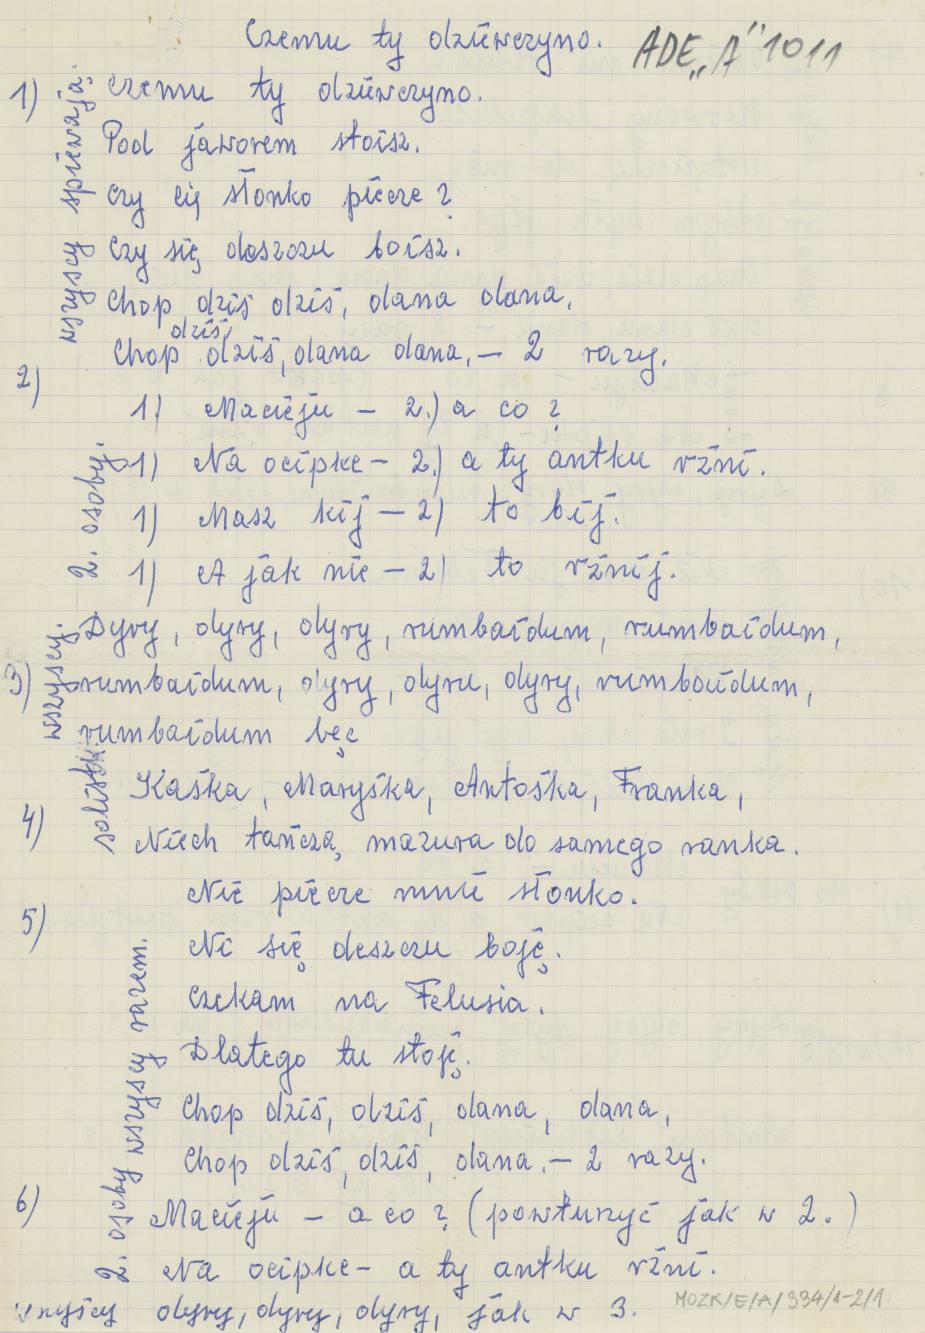 Czemu ty dziewczyno. ADE„A”1011
1) wszyscy śpiewają. Czemu ty dziewczyno.
Pod jaworem stoisz.
Czy cię słonko piecze?
Czy się doszczu boisz.
Chop dziś dziś, dana dana,
Chop dziś, dziś, dana dana, – 2 razy.
2) 2. osoby. 1) Macieju – 2.) a co?
1) Na ocipke – 2.) a ty antku rżni.
1) Masz kij – 2) to bij.
1) A jak nie – 2) to rżnij.
3) wszyscy. Dyry, dyry, dyry, rumbaidum, rumbaidum,
rumbaidum, dyry, dyru, dyry, rumbaidum,
rumbaidum bęc
4) Kaśka, Maryśka, Antośka, Franka,
Niech tańczą mazura do samego ranka.
5) Nie piecze mnie słonko.
Ni się deszczu boję.
Czekam na Felusia.
Dlatego tu stoję.
Chop dziś, dziś, dana, dana,
Chop dziś, dziś, dana, – 2 razy.
6) 2. osoby wszyscy razem. Macieju – a co? (powturzyć jak w 2.)
Na ocipke – a ty antku rżni.
wszyscy dyry, dyry, dyry, jak w 3.
MOZK/E/A/334/1-2/1